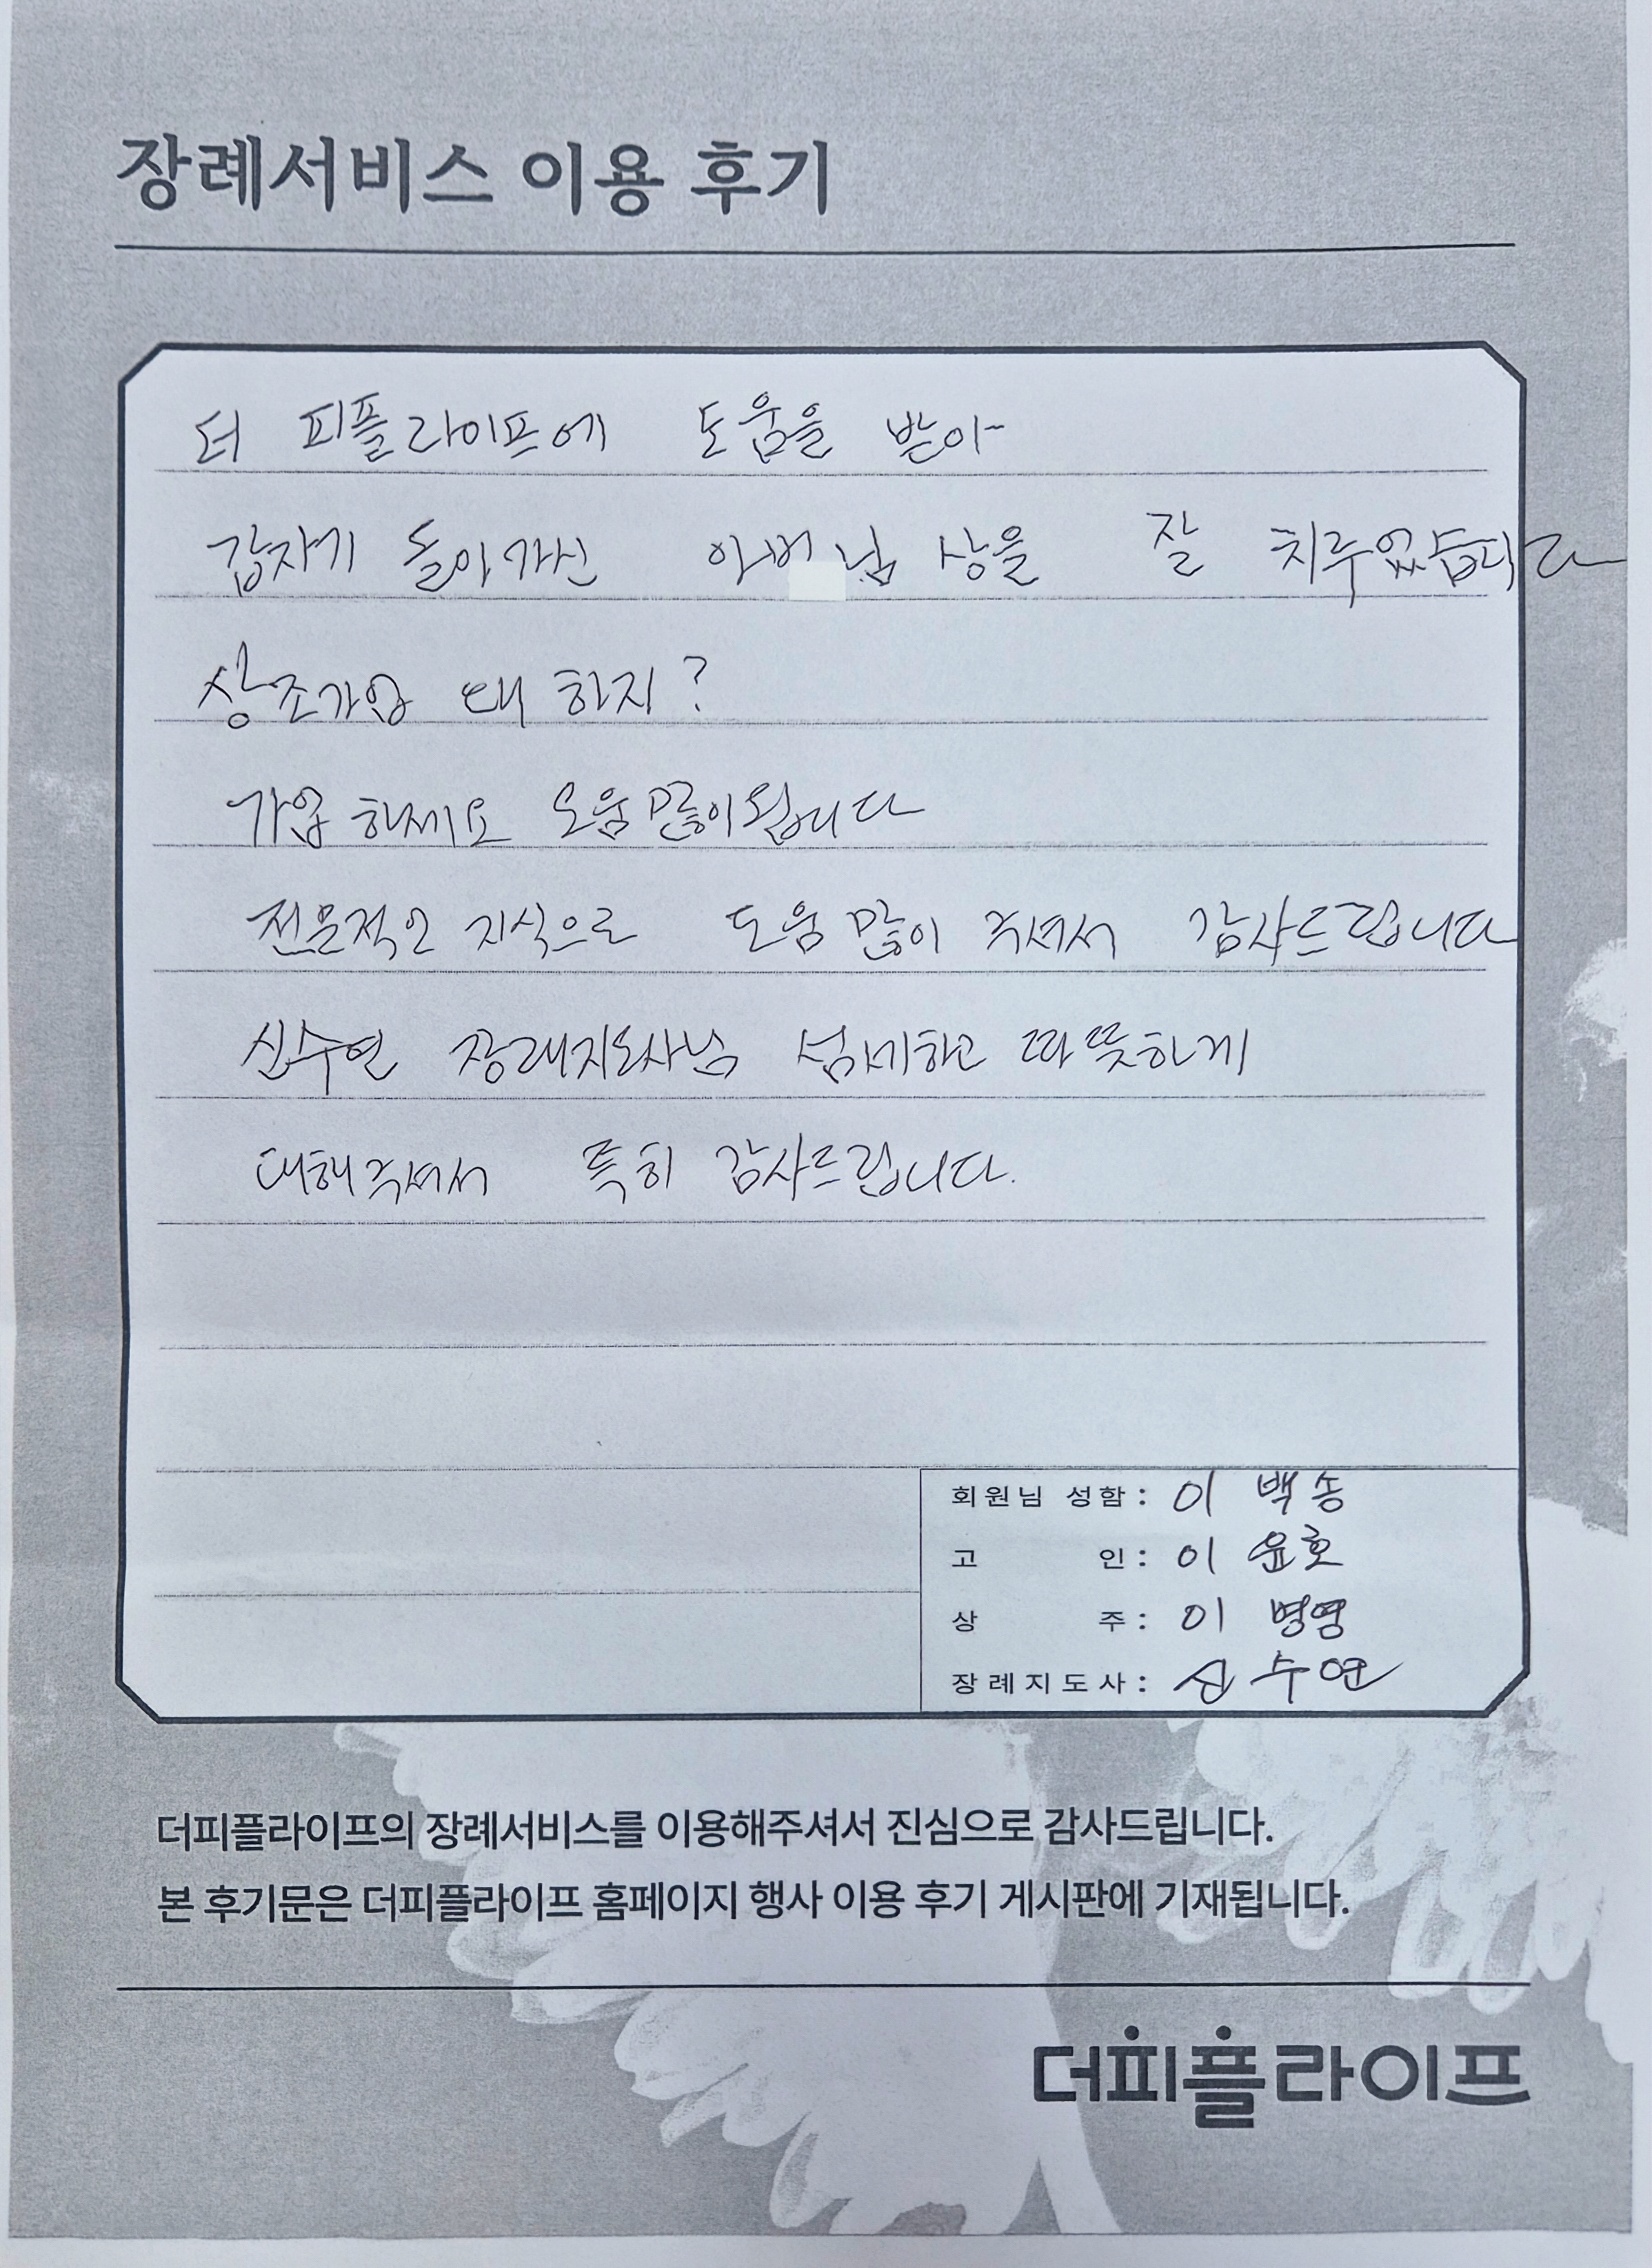 장례서비스 이용 후기
더 피플라이프에 도움을 받아
갑자기 돌아가신 아버님 상을 잘 치루었습니다
상조가입 왜 하지?
가입 하세요 도움 많이 됩니다
전문적인 지식으로 도움 많이 주셔서 감사드립니다
신수연 장래지도사님 섬세하고 따뜻하게
대해주셔서 특히 감사드립니다.
회원님 성함: 이 백송
고 인: 이 윤호
상 주: 이 병영
장례지도사: 신수연
더피플라이프의 장례서비스를 이용해주셔서 진심으로 감사드립니다.
본 후기문은 더피플라이프 홈페이지 행사 이용 후기 게시판에 기재됩니다.
더피플라이프